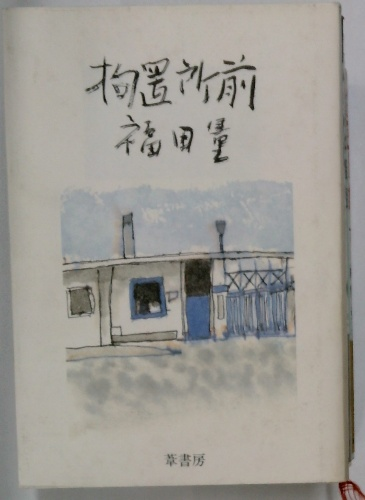 拘置所前
福田量
葦書房